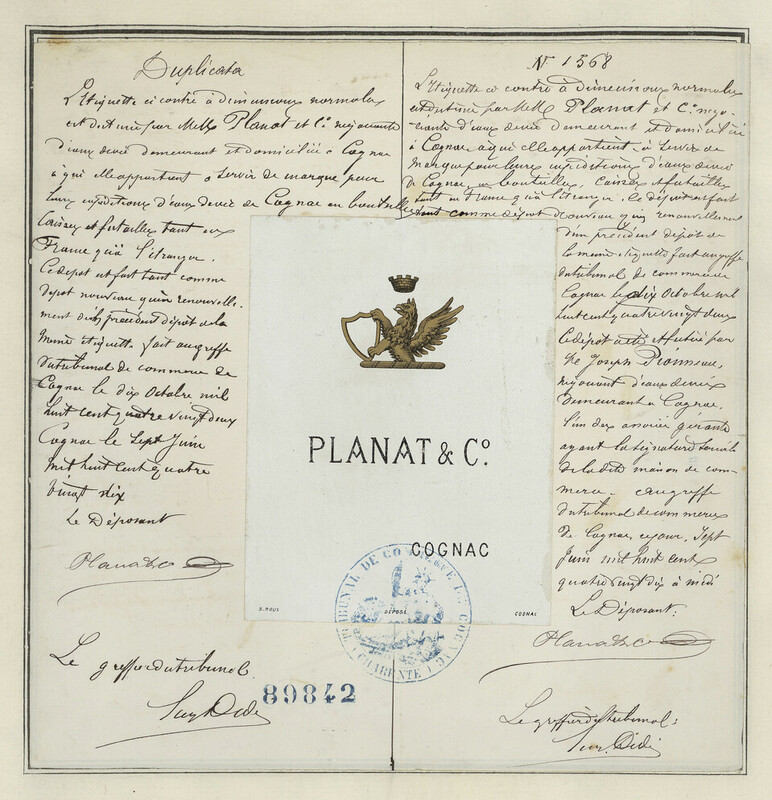 Duplicata
L'Etiquette ci contre à dimensions normales
est déposée par MM. Planat et Cº négociants
d'eaux de vie demeurant et domiciliés à Cognac
à qui elle appartient à servir de marque pour
leurs expéditions d'eaux de vie de Cognac en bouteilles
Caisses et futailles tant en
France qu'à l'étranger.
Ce dépôt est fait tant comme
dépôt nouveau qu'en renouvelle-
ment d'un précédent dépôt de la
même étiquette fait au greffe
du tribunal de commerce de
Cognac le dix Octobre mil
huit cent quatre vingt deux
Cognac le Sept Juin
mil huit cent quatre
vingt dix
Le Déposant
Planat & Co
Le greffier du tribunal
89842
Nº 1568
L'Etiquette ci contre à dimensions normales
est déposée par MM. Planat et Cº négo-
ciants d'eaux de vie demeurant et domiciliés
à Cognac à qui elle appartient à servir de
marque pour leurs expéditions d'eaux de vie
de Cognac en bouteilles, caisses et futailles
tant en France qu'à l'étranger. Ce dépôt est fait
tant comme dépôt nouveau qu'en renouvellement
d'un précédent dépôt de
la même étiquette fait au greffe
du tribunal de commerce de
Cognac le dix Octobre mil
huit cent quatre vingt deux
Ce dépôt a été effectué par
Joseph
négociant d'eaux de vie
demeurant à Cognac,
l'un des associés gérants
ayant la signature sociale
de la dite maison de com-
merce. Au greffe
du tribunal de commerce
de Cognac, ce jour, Sept
Juin mil huit cent
quatre vingt dix à midi
Le Déposant:
Planat & Co
Le greffier du tribunal:
PLANAT & Cº.
COGNAC
DÉPOSÉ
COGNAC
TRIBUNAL DE COMMERCE DE COGNAC
CHARENTE